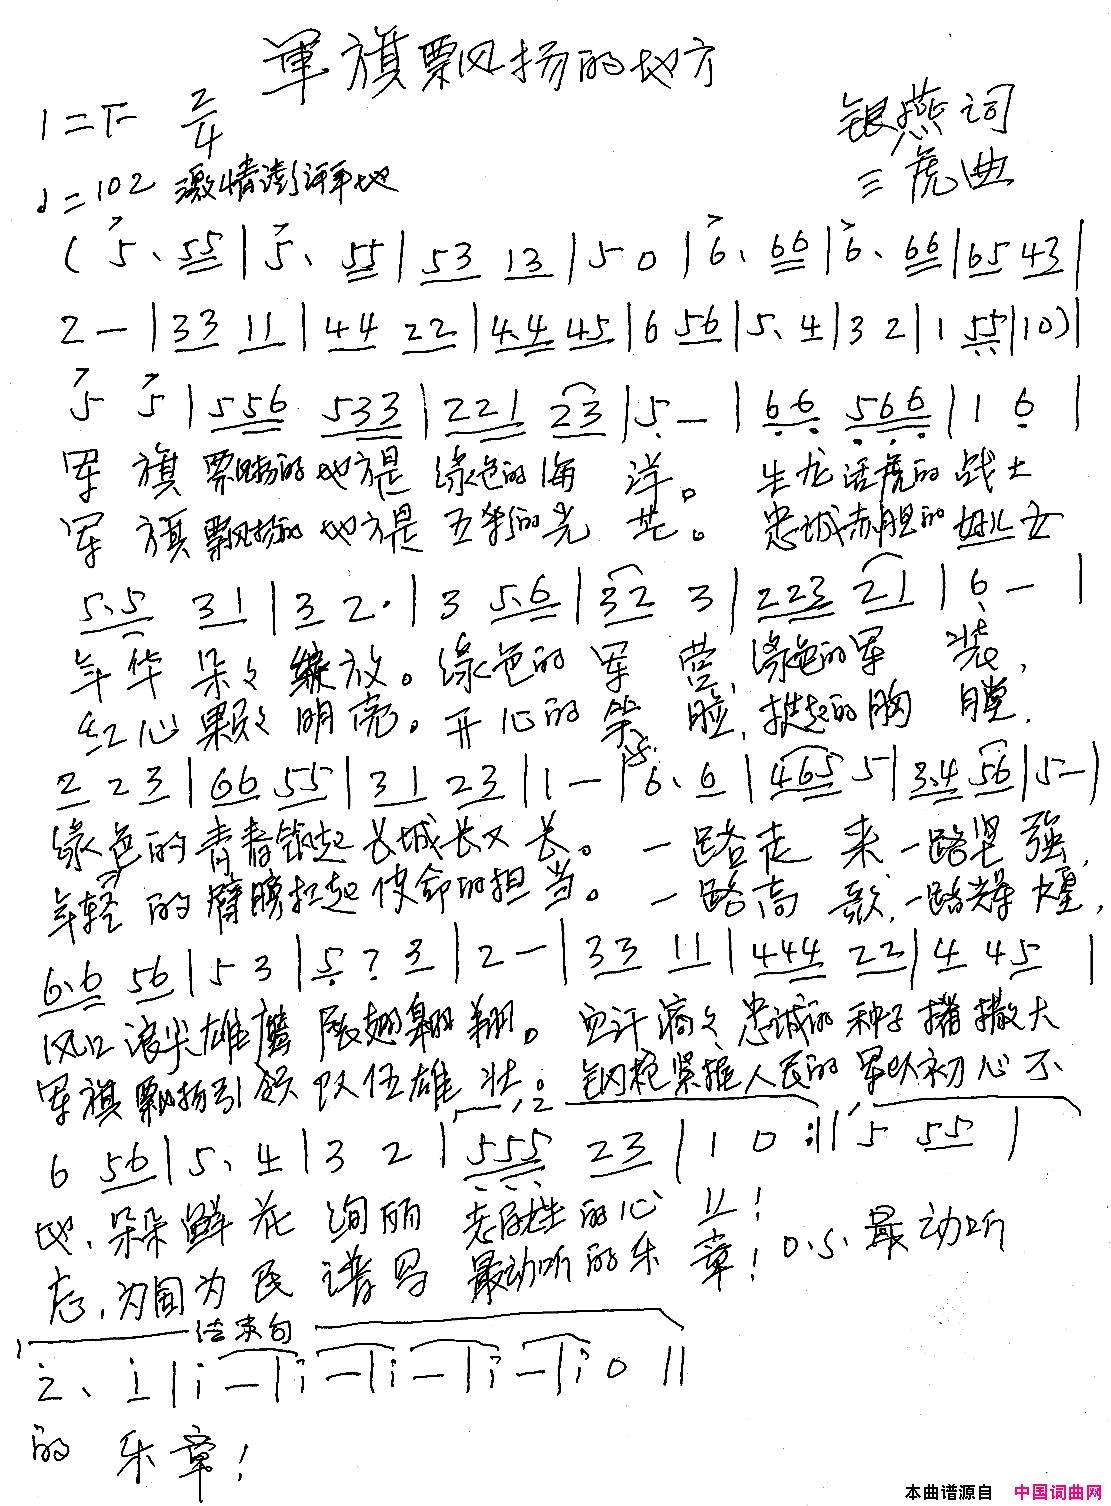 軍旗飘扬的地方
1=F 2/4
银燕词
♩=102 激情澎湃地
三虎曲
( 5. 55 | 5. 55 | 53 13 | 5 0 | 6. 66 | 6. 66 | 65 43 |
2 - | 33 11 | 44 22 | 4.4 45 | 6 56 | 5. 4 | 3 2 | 1 55 | 10) |
5 5 | 556 533 | 221 23 | 5 - | 66 566 | 1 6 |
军 旗 飘扬的地方是 绿色的海 洋。 生龙活虎的战士
军 旗飘扬的地方是 五彩的光 芒。 忠诚赤胆的好儿女
5.5 31 | 3 2. | 3 5.6 | 32 3 | 223 21 | 6 - |
年华 朵々 绽放。绿色的 军 营,绿色的军 装,
红心 颗々 明亮。开心的 笑 脸,挺起的胸 膛,
2 2 3 | 66 55 | 31 23 | 1 - | 6. 6 | 465 5 | 3.4 56 | 5 - |
绿色的青春筑起长城长又长。一路走 来一路坚强,
年轻的臂膀扛起使命的担当。一路高 歌,一路辉煌,
6.6 56 | 5 3 | 5 7 3 | 2 - | 33 11 | 444 22 | 4 45 |
风口浪尖雄鹰 展翅翱翔。 血汗滴々忠诚的种子播撒大
军旗飘扬引领队伍雄壮。钢枪紧握人民的军队初心不
1.2
6 56 | 5. 4 | 3 2 | 555 23 | 1 0 :|| 5 55 |
地,朵朵鲜花 绚丽 老百姓的心上!
忘,为国为民 谱写 最动听的乐 章! D.S. 最动听
结束句
2. 1 | i - | i - | i - | i - | i 0 ||
的 乐章!
本曲谱源自 中国词曲网